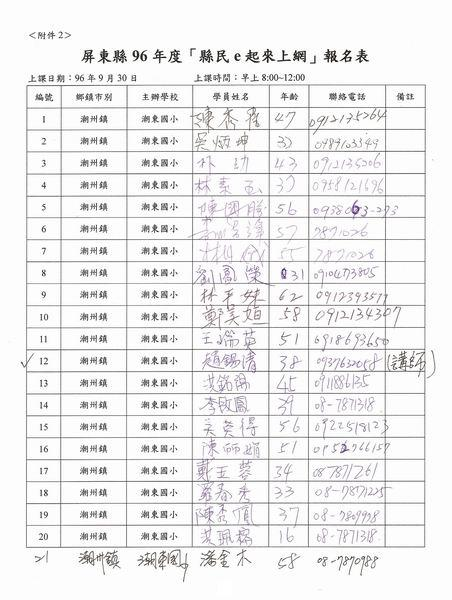 ＜附件 2＞
屏東縣 96 年度「縣民 e 起來上網」報名表
上課日期：96 年 9 月 30 日 上課時間：早上 8:00~12:00
編號 鄉鎮市別 主辦學校 學員姓名 年齡 聯絡電話 備註
1 潮州鎮 潮東國小 陳秀 47 0912135264
2 潮州鎮 潮東國小 吳炳坤
3 潮州鎮 潮東國小 43 0912135206
4 潮州鎮 潮東國小 林 0958121696
5 潮州鎮 潮東國小 陳國勝 56
6 潮州鎮 潮東國小 57 7871026
7 潮州鎮 潮東國小 55 7871026
8 潮州鎮 潮東國小 劉鳳榮 31 0910473805
9 潮州鎮 潮東國小 林 妹 62
10 潮州鎮 潮東國小 鄭美 58 0912134307
11 潮州鎮 潮東國小 王瑞英 51 0918693650
✓ 12 潮州鎮 潮東國小 趙錫清 38 0937632058 (講師)
13 潮州鎮 潮東國小 45 0911886135
14 潮州鎮 潮東國小 李 鳳 39 08-7871318
15 潮州鎮 潮東國小 得 56 0922518123
16 潮州鎮 潮東國小 陳 娟 51 0952766157
17 潮州鎮 潮東國小 戴玉蓉 34 08-7871261
18 潮州鎮 潮東國小 羅春秀 33 08-7871225
19 潮州鎮 潮東國小 陳秀鳳 37
20 潮州鎮 潮東國小 16 08-7871318
21 潮州鎮 潮東國小 潘金木 58 08-7870988